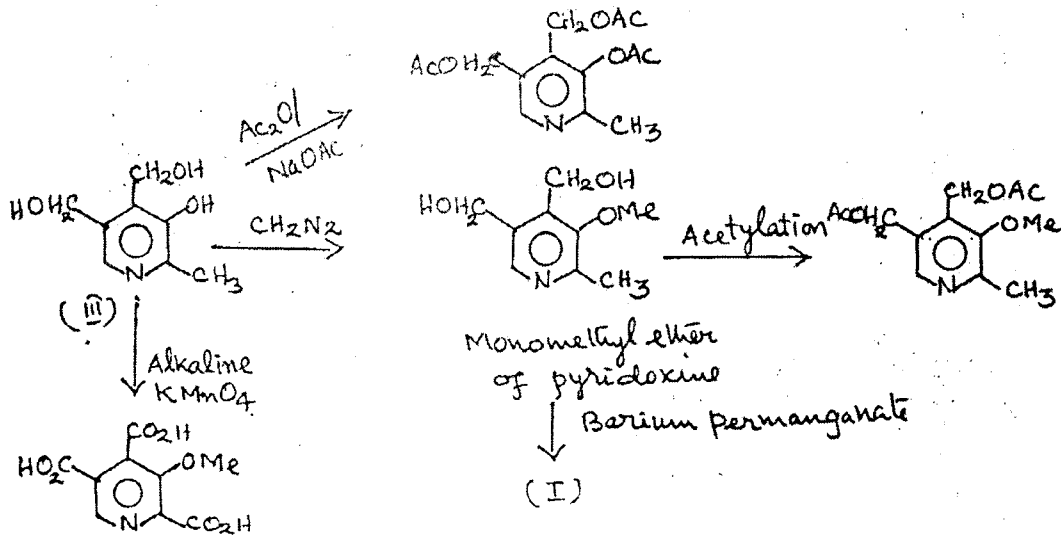 CH2OAC
ACOH2C
OAC
N
CH3
Ac2O/
NaOAC
CH2OH
HOH2C
OH
N
CH3
(III)
CH2N2
CH2OH
HOH2C
OMe
N
CH3
Acetylation
CH2OAC
ACOH2C
OMe
N
CH3
Monomethyl ether
of pyridoxine
Barium permanganate
(I)
Alkaline
KMnO4
CO2H
HO2C
OMe
N
CO2H